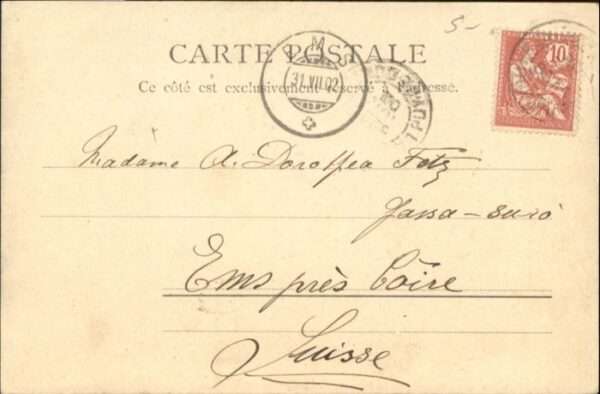 5-
CARTE POSTALE
Ce côté est exclusivement réservé à l'adresse.
10
EMS
31.VII.02
Madame A. Doroffea
Gassa-surò
Ems près Côire
Suisse